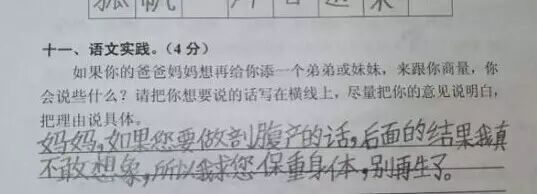 孤帆 片 日 边 来
十一、语文实践。(4分)
如果你的爸爸妈妈想再给你添一个弟弟或妹妹，来跟你商量，你
会说些什么？请把你想要说的话写在横线上，尽量把你的意见说明白，
把理由说具体。
妈妈，如果您要做剖腹产的话，后面的结果我真
不敢想象，所以我求您保重身体，别再生了。